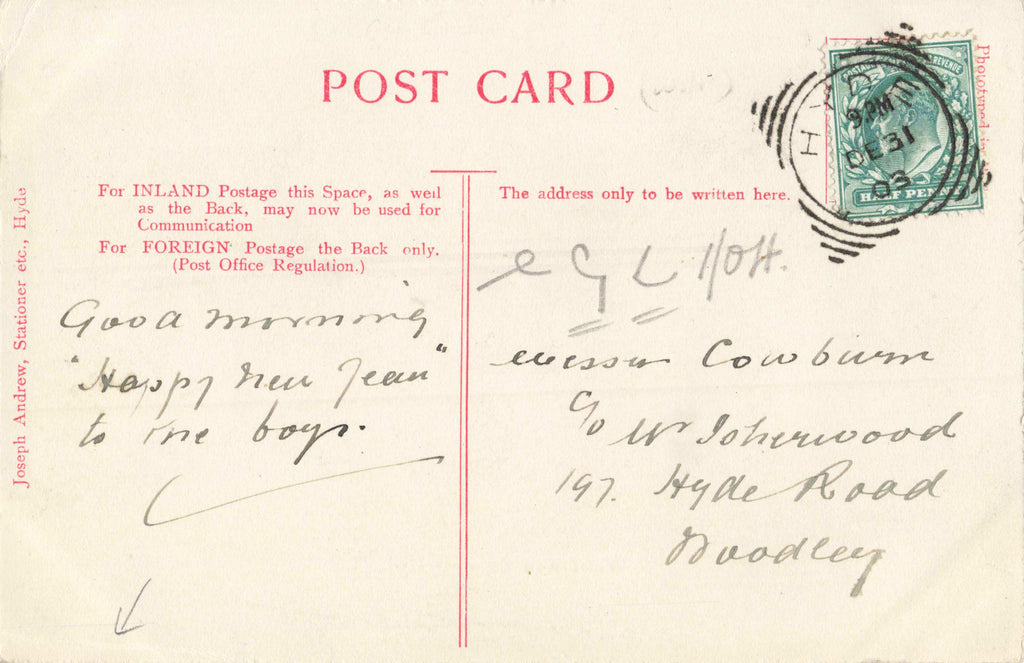 POST CARD
For INLAND Postage this Space, as well
as the Back, may now be used for
Communication
For FOREIGN Postage the Back only.
(Post Office Regulation.)
The address only to be written here.
Joseph Andrew, Stationer etc., Hyde
Phototyped in
POSTAGE REVENUE
HALF PENNY
HYDE
9. PM
DE 31
03
Good morning
"Happy New Year"
to the boys.
Messrs Cowburn
c/o Mr Isherwood
197. Hyde Road
Woodley